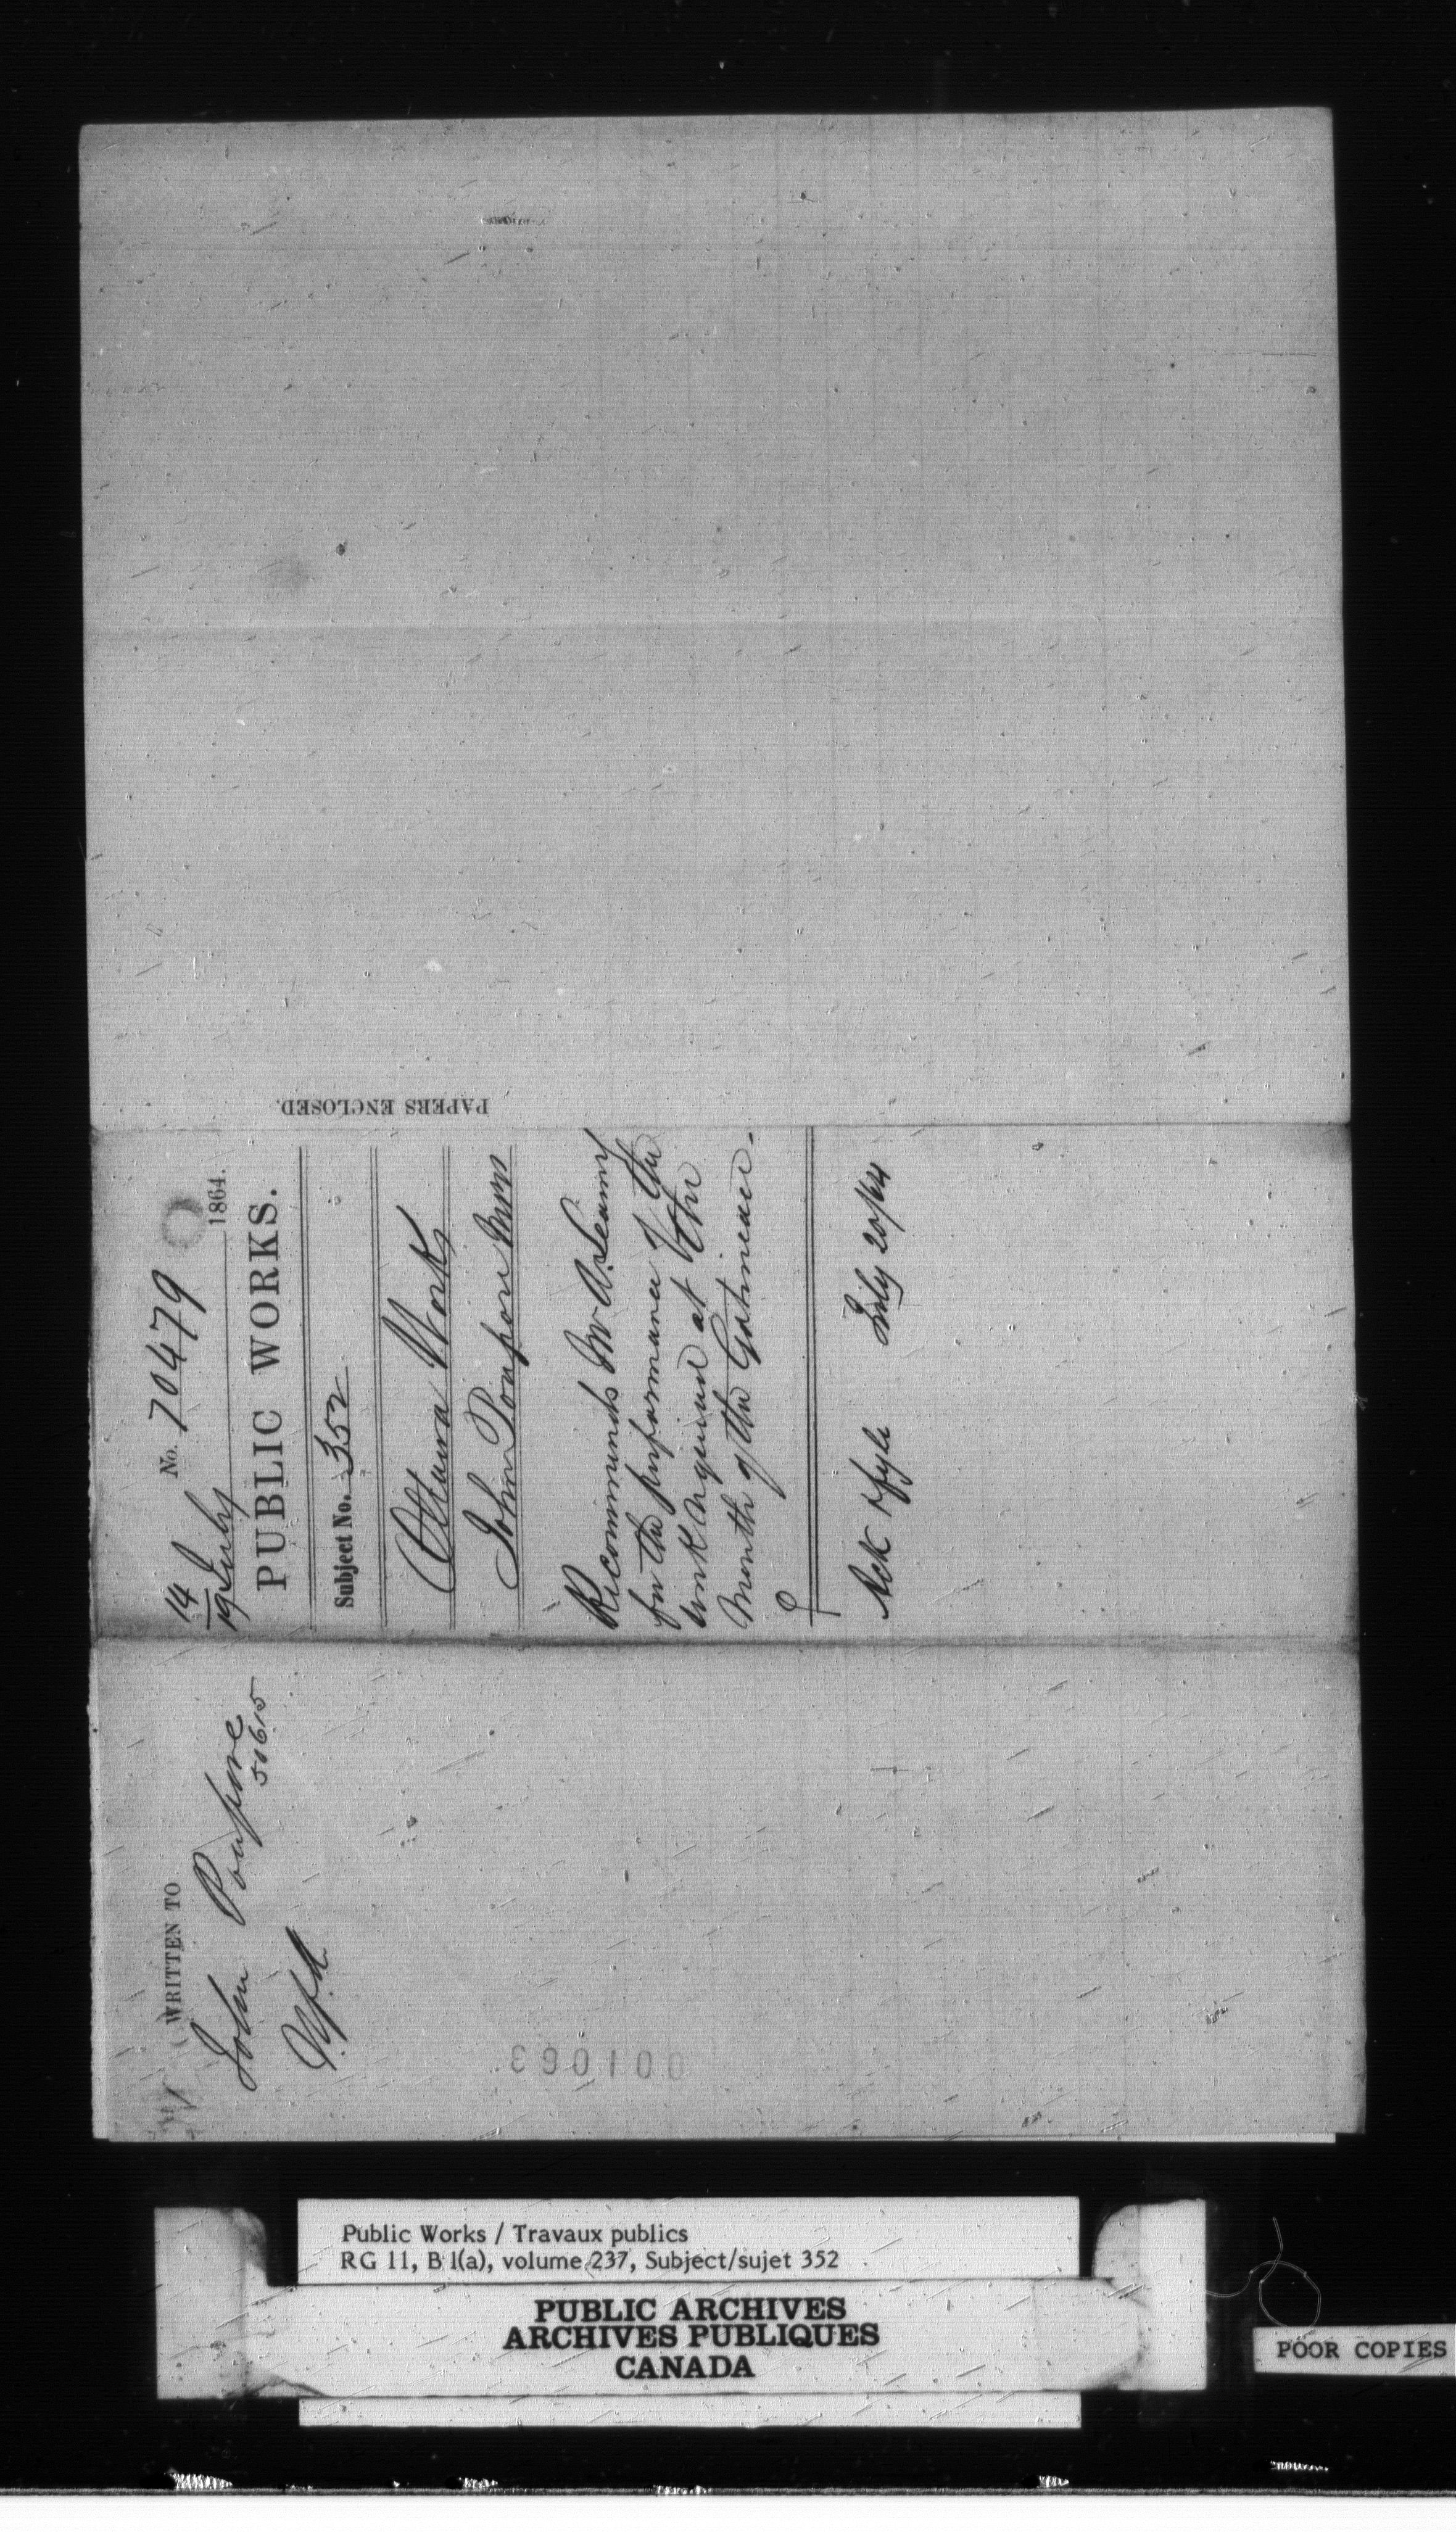 No. 70479
14
19 July 1864.
PUBLIC WORKS.
Subject No. 352
Ottawa Works
John Poupore MPP
Recommends Mr A. Leamy
for the performance of the
work required at the
Mouth of the Gatineau.
Ack July 20/64
PAPERS ENCLOSED.
WRITTEN TO
John Poupore
50615
001063
Public Works / Travaux publics
RG 11, B 1(a), volume 237, Subject/sujet 352
PUBLIC ARCHIVES
ARCHIVES PUBLIQUES
CANADA
POOR COPIES